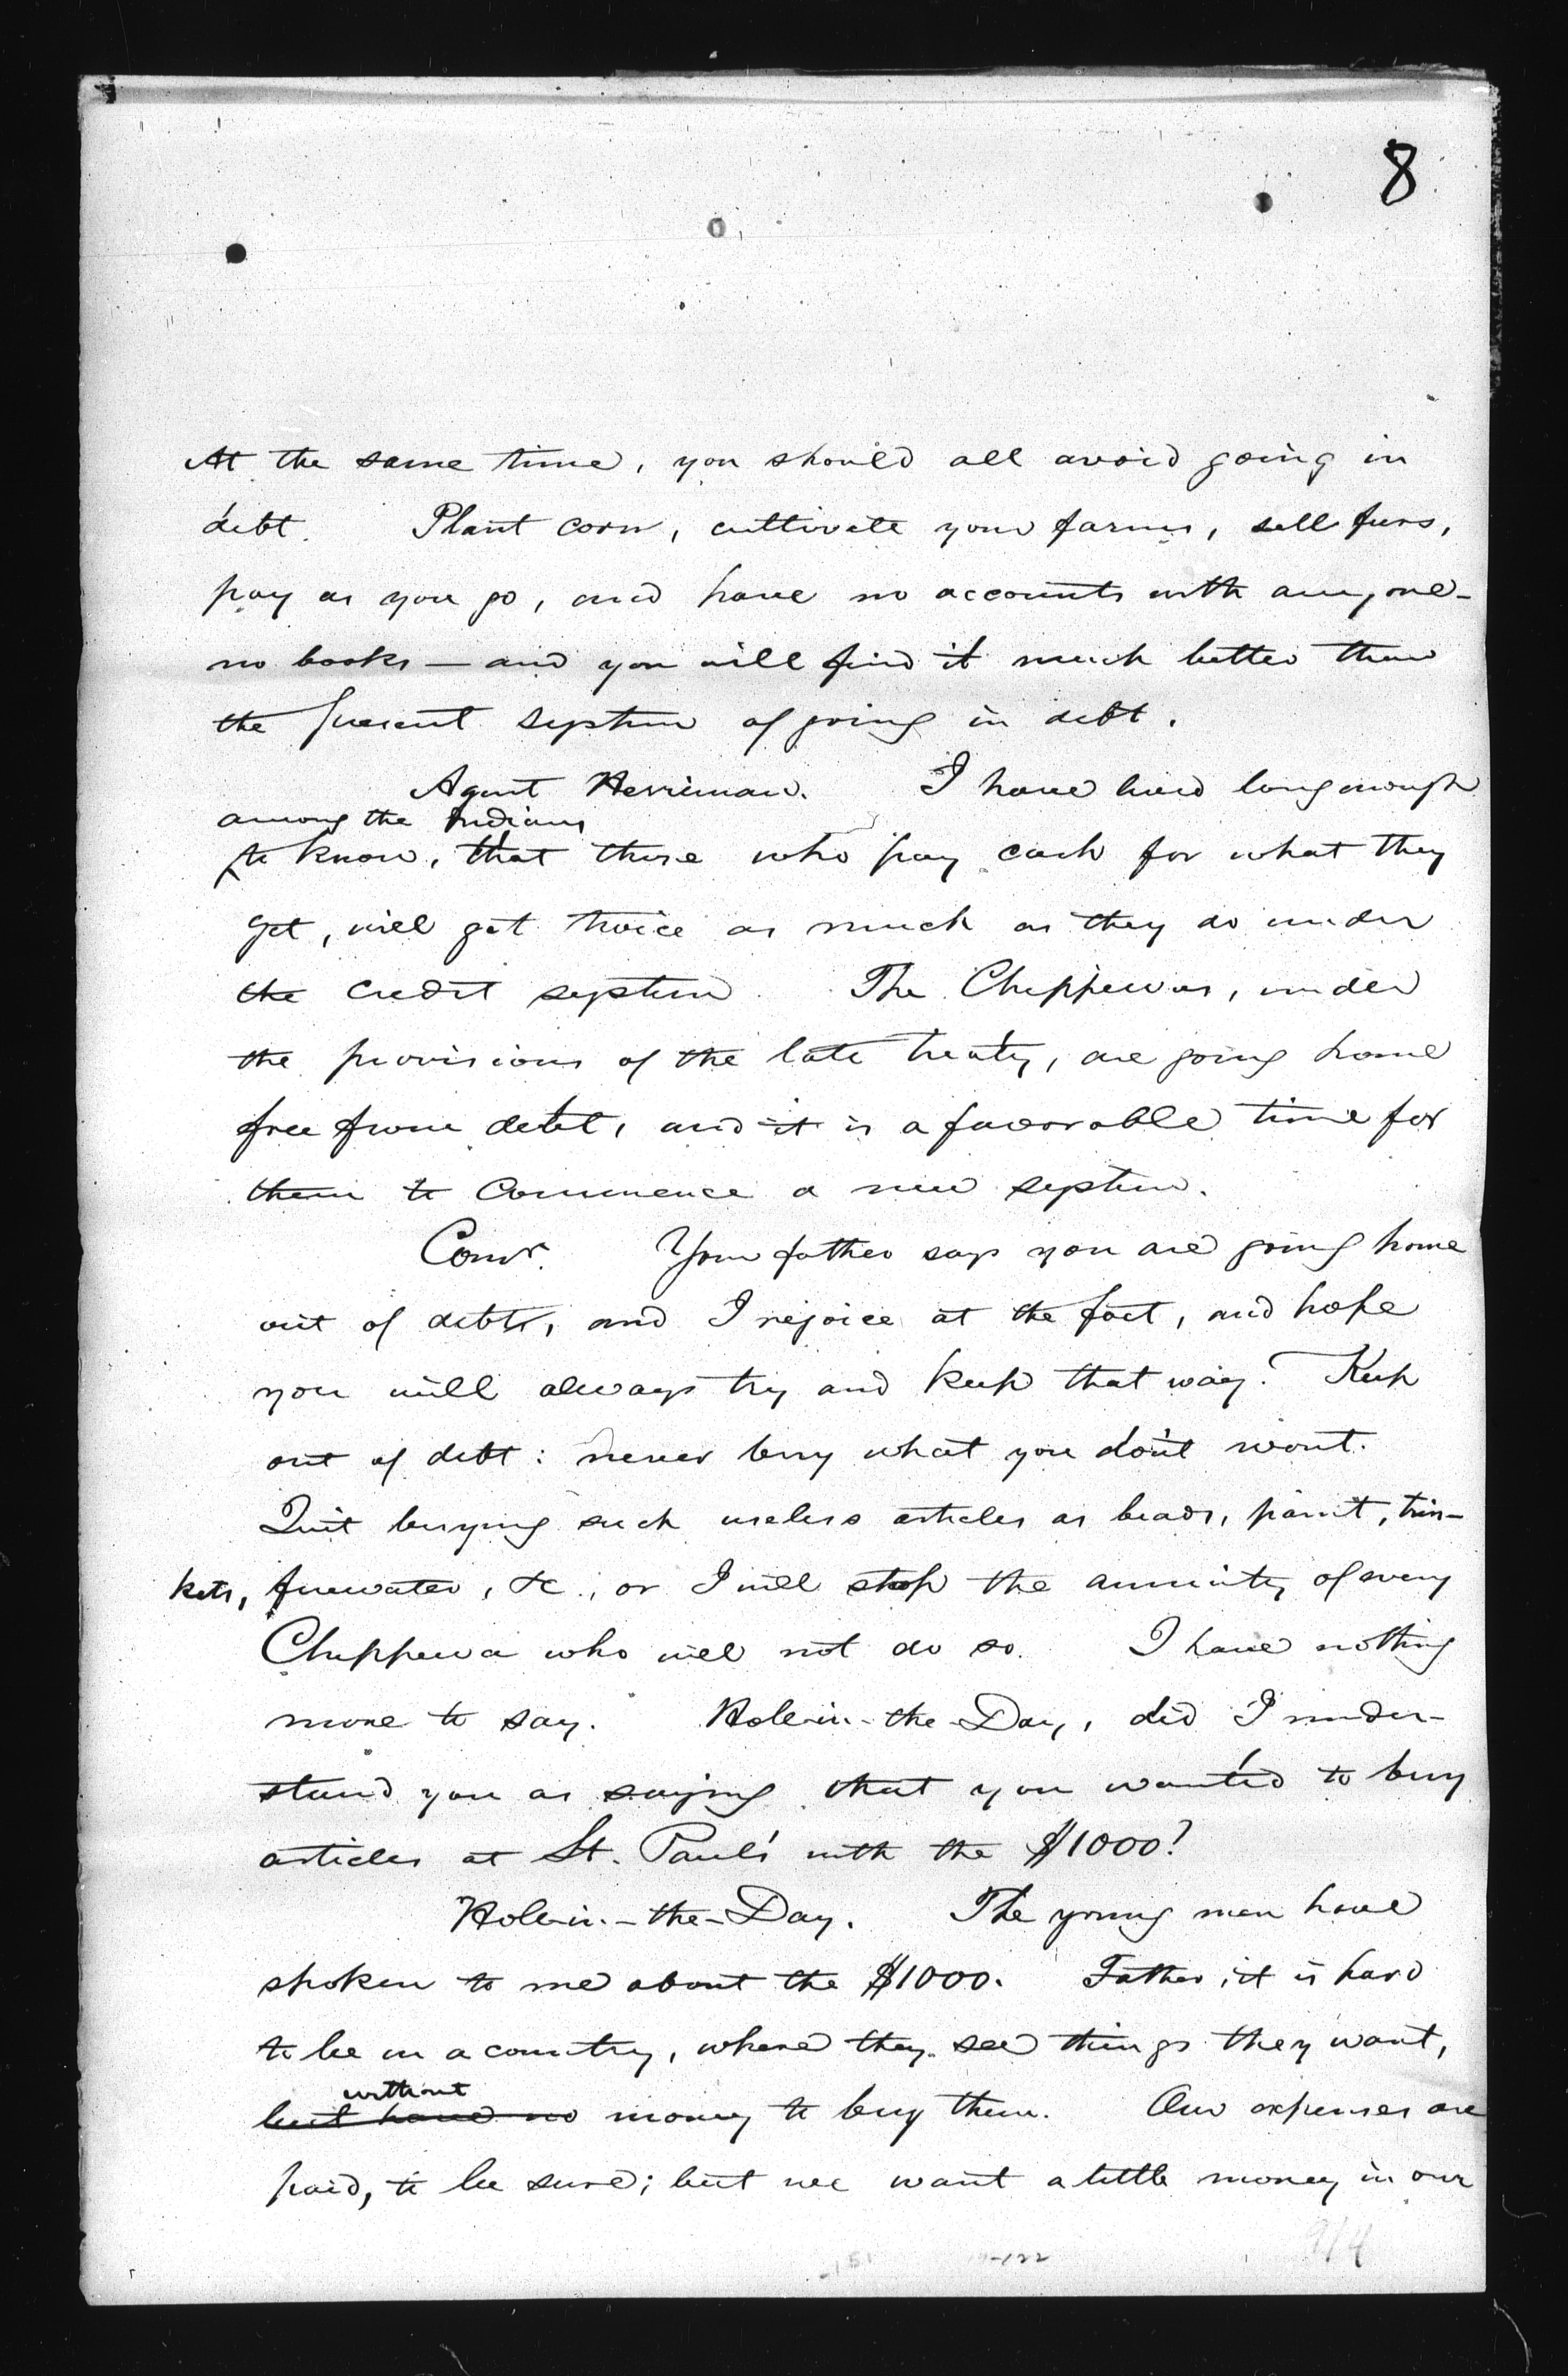 8
At the same time, you should all avoid going in
debt. Plant corn, cultivate your farms, sell furs,
pay as you go, and have no accounts with anyone—
no books — and you will find it much better than
the present system of going in debt.
Agent Herriman. I have lived long enough
among the Indians
to know, that those who pay cash for what they
get, will get twice as much as they do under
the credit system. The Chippewas, under
the provisions of the late treaty, are going home
free from debt, and it is a favorable time for
them to commence a new system.
Comr. Your father says you are going home
out of debt, and I rejoice at the fact, and hope
you will always try and keep that way. Keep
out of debt: never buy what you don't want.
Quit buying such useless articles as beads, paint, trin-
kets, firewater, &c., or I will stop the annuity of every
Chippewa who will not do so. I have nothing
more to say. Hole-in-the-Day, did I under-
stand you as saying that you wanted to buy
articles at St. Paul's with the $1000?
Hole-in-the-Day. The young men have
spoken to me about the $1000. Father, it is hard
to be in a country, where they see things they want,
without
but have no money to buy them. Our expenses are
paid, to be sure; but we want a little money in our